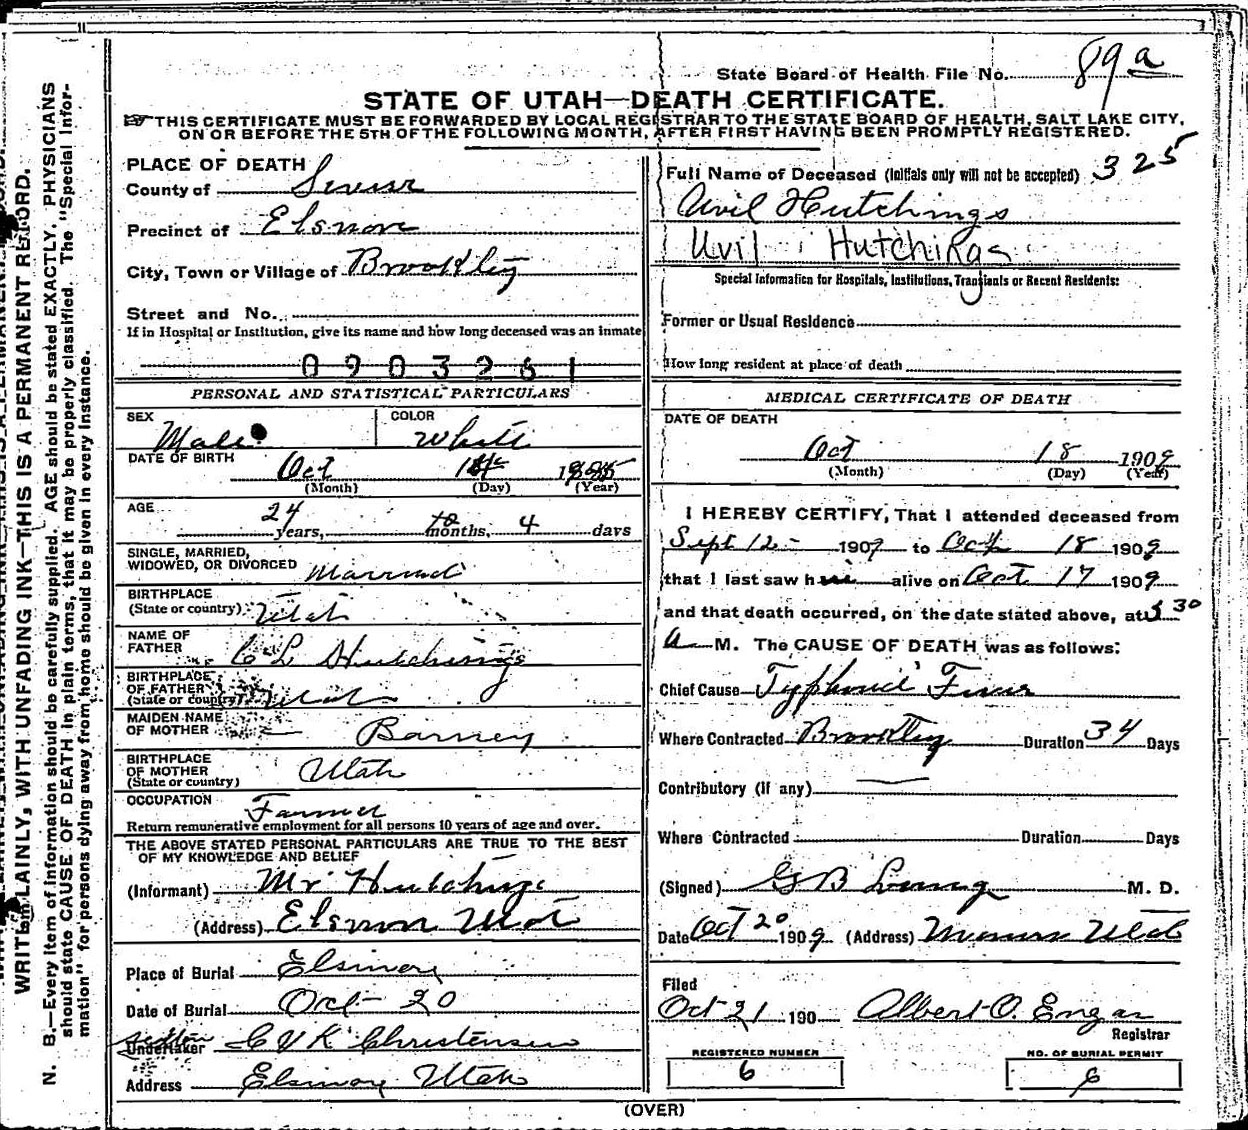 State Board of Health File No. 89 a
STATE OF UTAH—DEATH CERTIFICATE.
THIS CERTIFICATE MUST BE FORWARDED BY LOCAL REGISTRAR TO THE STATE BOARD OF HEALTH, SALT LAKE CITY,
ON OR BEFORE THE 5TH OF THE FOLLOWING MONTH, AFTER FIRST HAVING BEEN PROMPTLY REGISTERED.
WRITE PLAINLY, WITH UNFADING INK—THIS IS A PERMANENT RECORD.
N. B.—Every item of information should be carefully supplied. AGE should be stated EXACTLY. PHYSICIANS
should state CAUSE OF DEATH in plain terms, that it may be properly classified. The "Special Infor-
mation" for persons dying away from home should be given in every instance.
PLACE OF DEATH
County of Sevier
Precinct of Elsinore
City, Town or Village of Brooklyn
Street and No.
If in Hospital or Institution, give its name and how long deceased was an inmate
0903261
PERSONAL AND STATISTICAL PARTICULARS
SEX Male COLOR White
DATE OF BIRTH Oct
(Month) (Day) (Year)
AGE 24 years, months, 4 days
SINGLE, MARRIED,
WIDOWED, OR DIVORCED Married
BIRTHPLACE
(State or country) Utah
NAME OF
FATHER C L Hutchings
BIRTHPLACE
OF FATHER
(State or country) Utah
MAIDEN NAME
OF MOTHER Barney
BIRTHPLACE
OF MOTHER
(State or country) Utah
OCCUPATION Farmer
Return remunerative employment for all persons 10 years of age and over.
THE ABOVE STATED PERSONAL PARTICULARS ARE TRUE TO THE BEST
OF MY KNOWLEDGE AND BELIEF
(Informant) Mr Hutchings
(Address) Elsinore Utah
Place of Burial Elsinore
Date of Burial Oct - 20
Sexton
Undertaker C V K Christensen
Address Elsinore Utah
Full Name of Deceased (Initials only will not be accepted) 325
Uvil Hutchings
Uvil Hutchings
Special Information for Hospitals, Institutions, Transients or Recent Residents:
Former or Usual Residence
How long resident at place of death
MEDICAL CERTIFICATE OF DEATH
DATE OF DEATH
Oct 18 1909
(Month) (Day) (Year)
I HEREBY CERTIFY, That I attended deceased from
Sept 12 - 1909 to Oct 18 1909
that I last saw him alive on Oct 17 1909
and that death occurred, on the date stated above, at 30
a M. The CAUSE OF DEATH was as follows:
Chief Cause Typhoid Fever
Where Contracted Brooklyn Duration 34 Days
Contributory (if any) —
Where Contracted Duration Days
(Signed) G B M. D.
Date Oct 20 1909 (Address) Monroe Utah
Filed
Oct 21 190 Albert O. Engar
Registrar
REGISTERED NUMBER
6
NO. OF BURIAL PERMIT
6
(OVER)